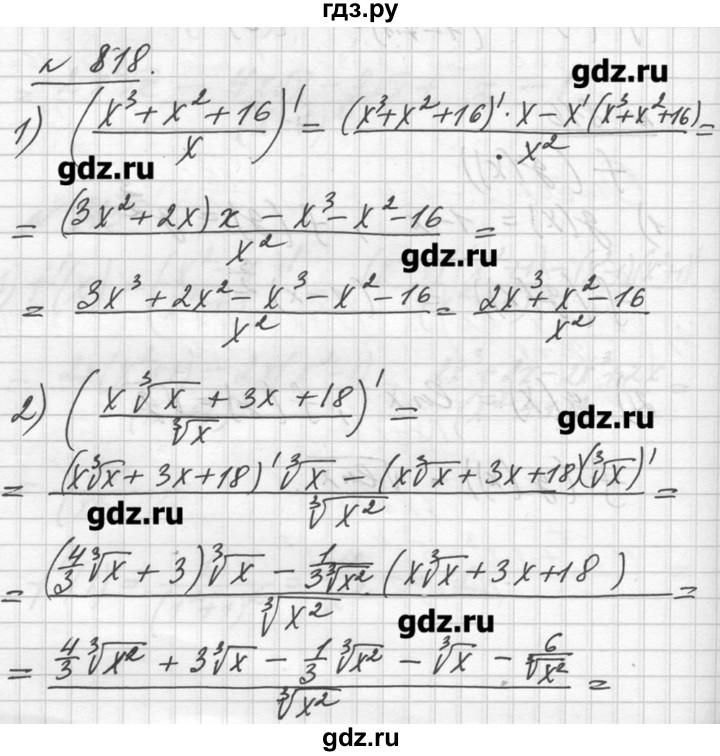 гдз.ру
№ 818.
gdz.ru
1) ((x³ + x² + 16)/x)' = ((x³+x²+16)'·x − x'(x³+x²+16))/x² =
gdz.ru
= ((3x²+2x)x − x³ − x² − 16)/x² =
gdz.ru
= (3x³ + 2x² − x³ − x² − 16)/x² = (2x³ + x² − 16)/x²
2) ((x∛x + 3x + 18)/∛x)' =
gdz.ru
= ((x∛x + 3x + 18)'∛x − (x∛x + 3x + 18)(∛x)')/∛x² =
gdz.ru
= ((4/3 ∛x + 3)∛x − 1/(3∛x²) (x∛x + 3x + 18))/∛x² =
gdz.ru
= (4/3 ∛x² + 3∛x − 1/3 ∛x² − ∛x − 6/∛x²)/∛x² =
гдз.ру